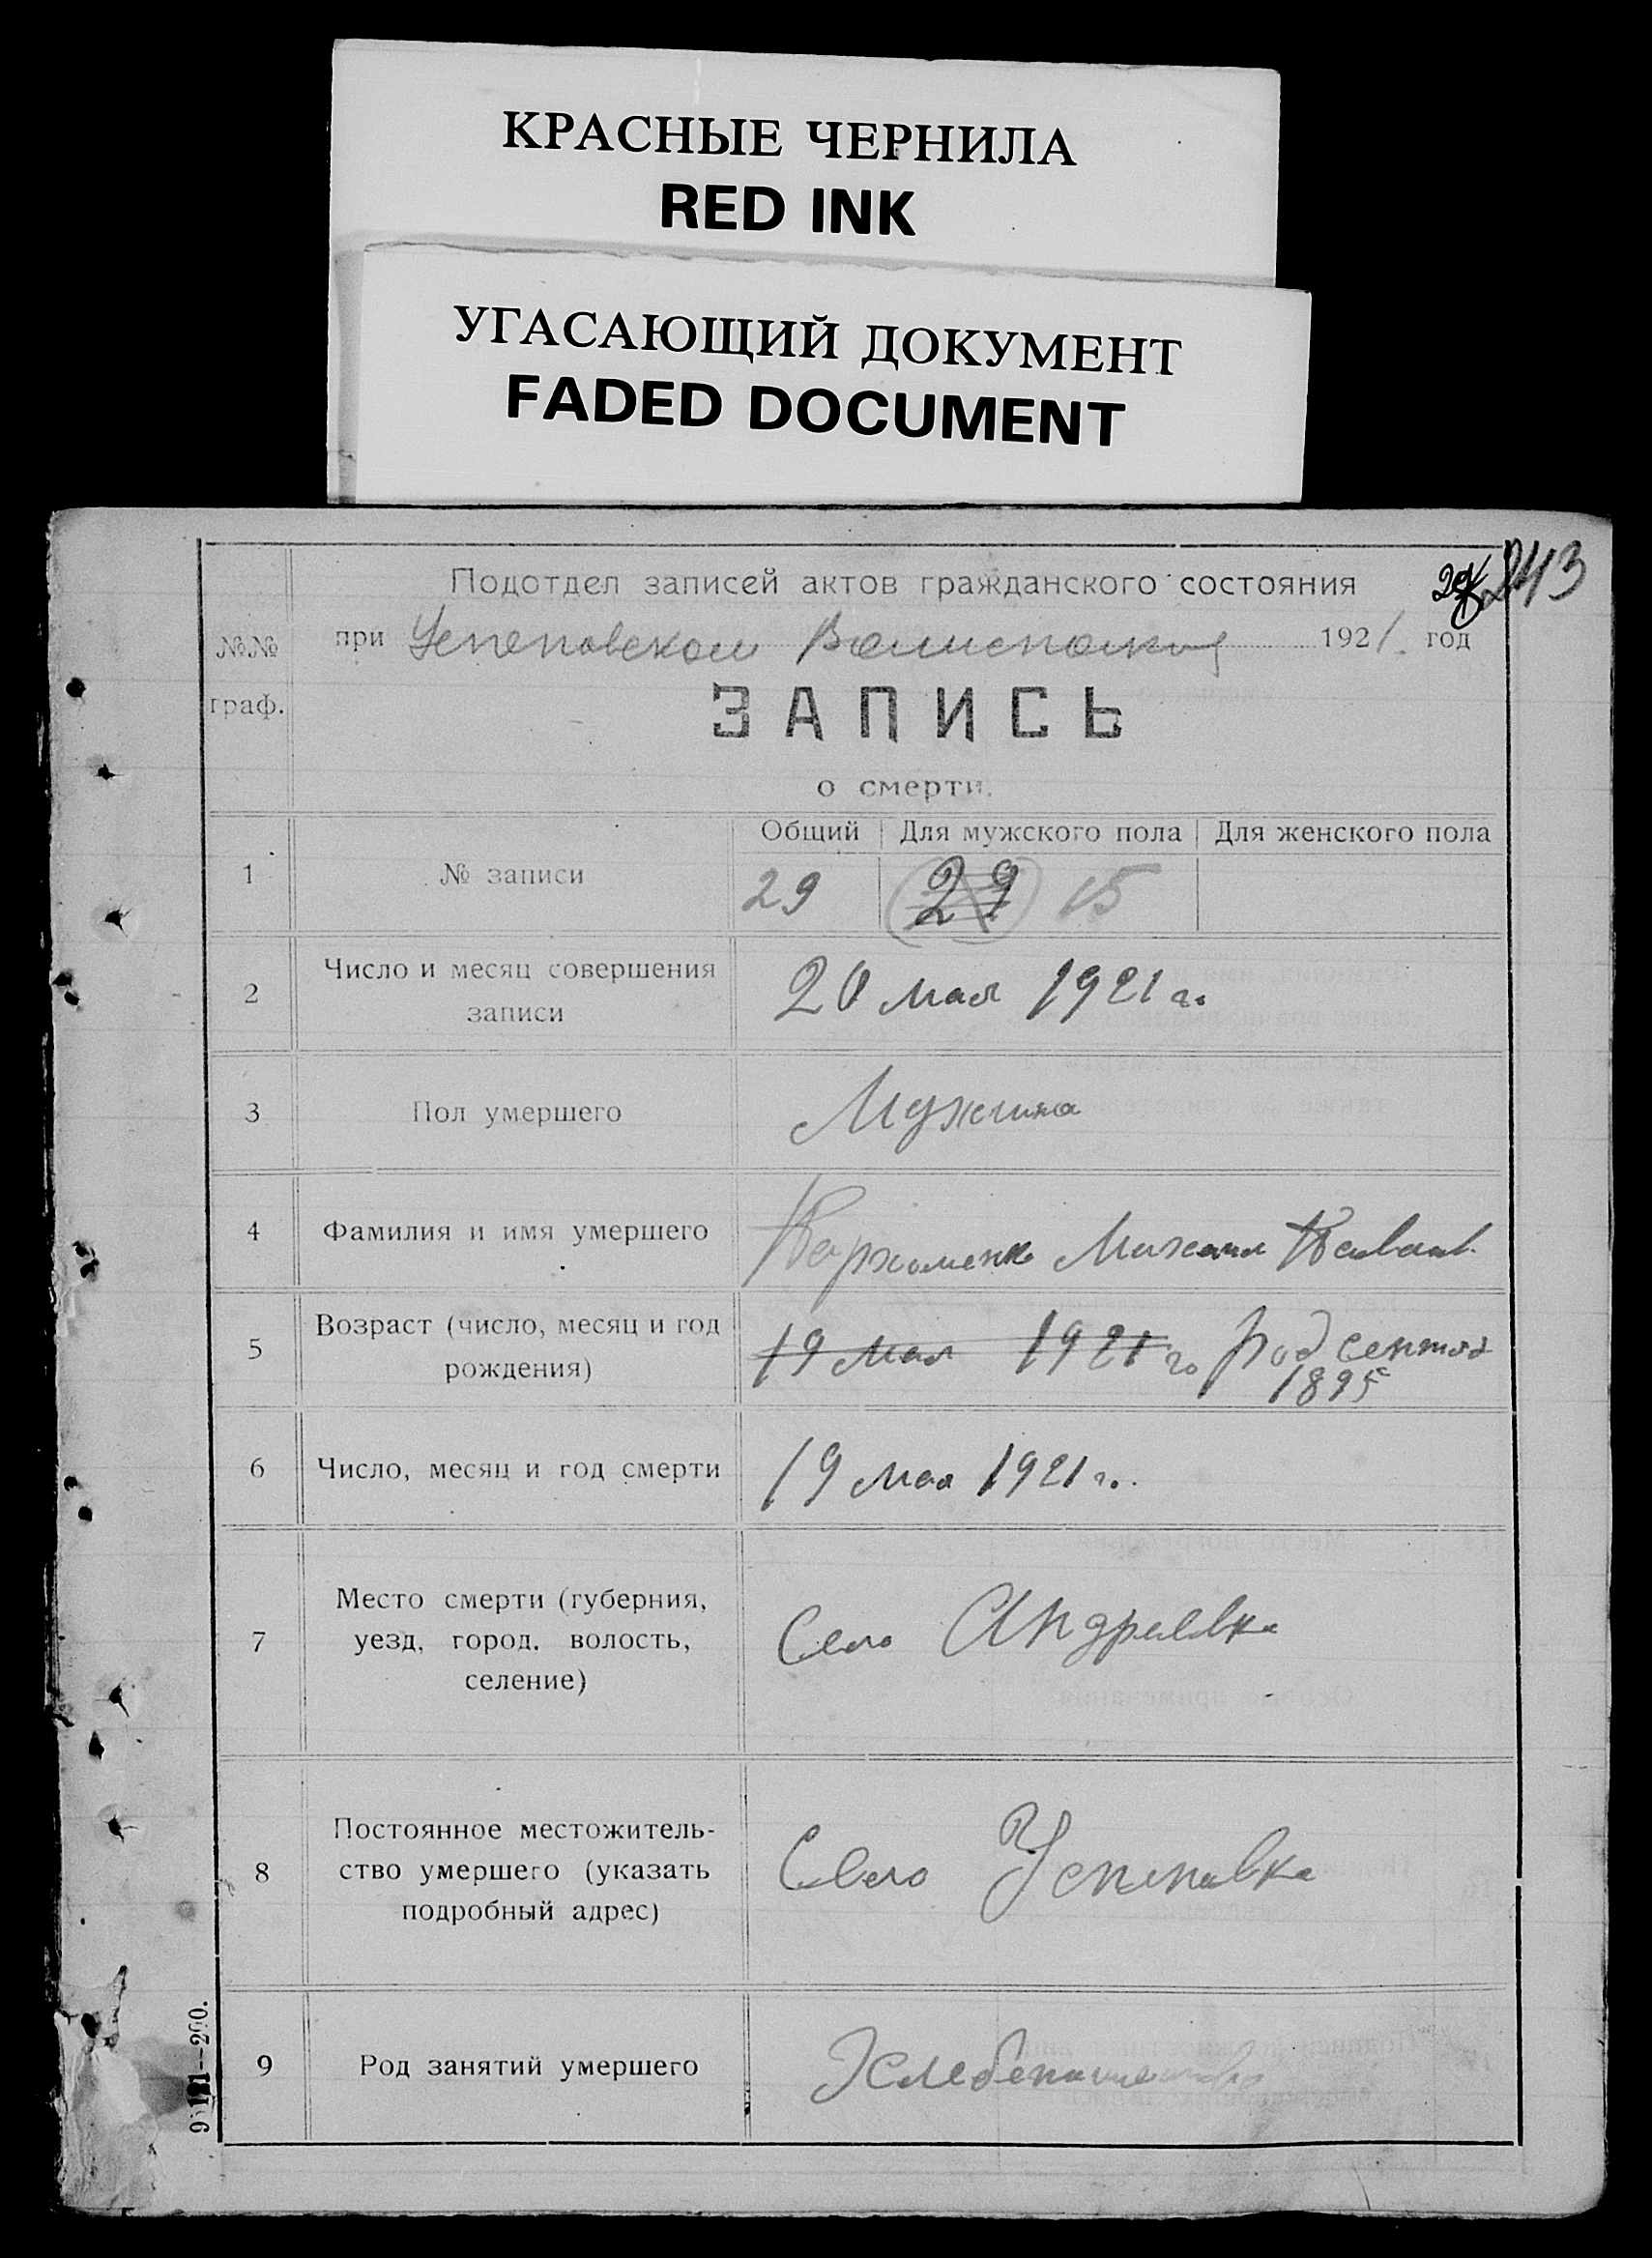 КРАСНЫЕ ЧЕРНИЛА
RED INK
УГАСАЮЩИЙ ДОКУМЕНТ
FADED DOCUMENT
243
Подотдел записей актов гражданского состояния
№№ граф.
при 1921. год
ЗАПИСЬ
о смерти.
Общий Для мужского пола Для женского пола
1 № записи 29 29 15
2 Число и месяц совершения записи 20 мая 1921 г.
3 Пол умершего Мужчина
4 Фамилия и имя умершего Пархоменко Михаил
5 Возраст (число, месяц и год рождения) 19 мая 1921 го род сентяб 1895
6 Число, месяц и год смерти 19 мая 1921 г.
7 Место смерти (губерния, уезд, город, волость, селение) Село Андреевка
8 Постоянное местожительство умершего (указать подробный адрес) Село Успеновка
9 Род занятий умершего